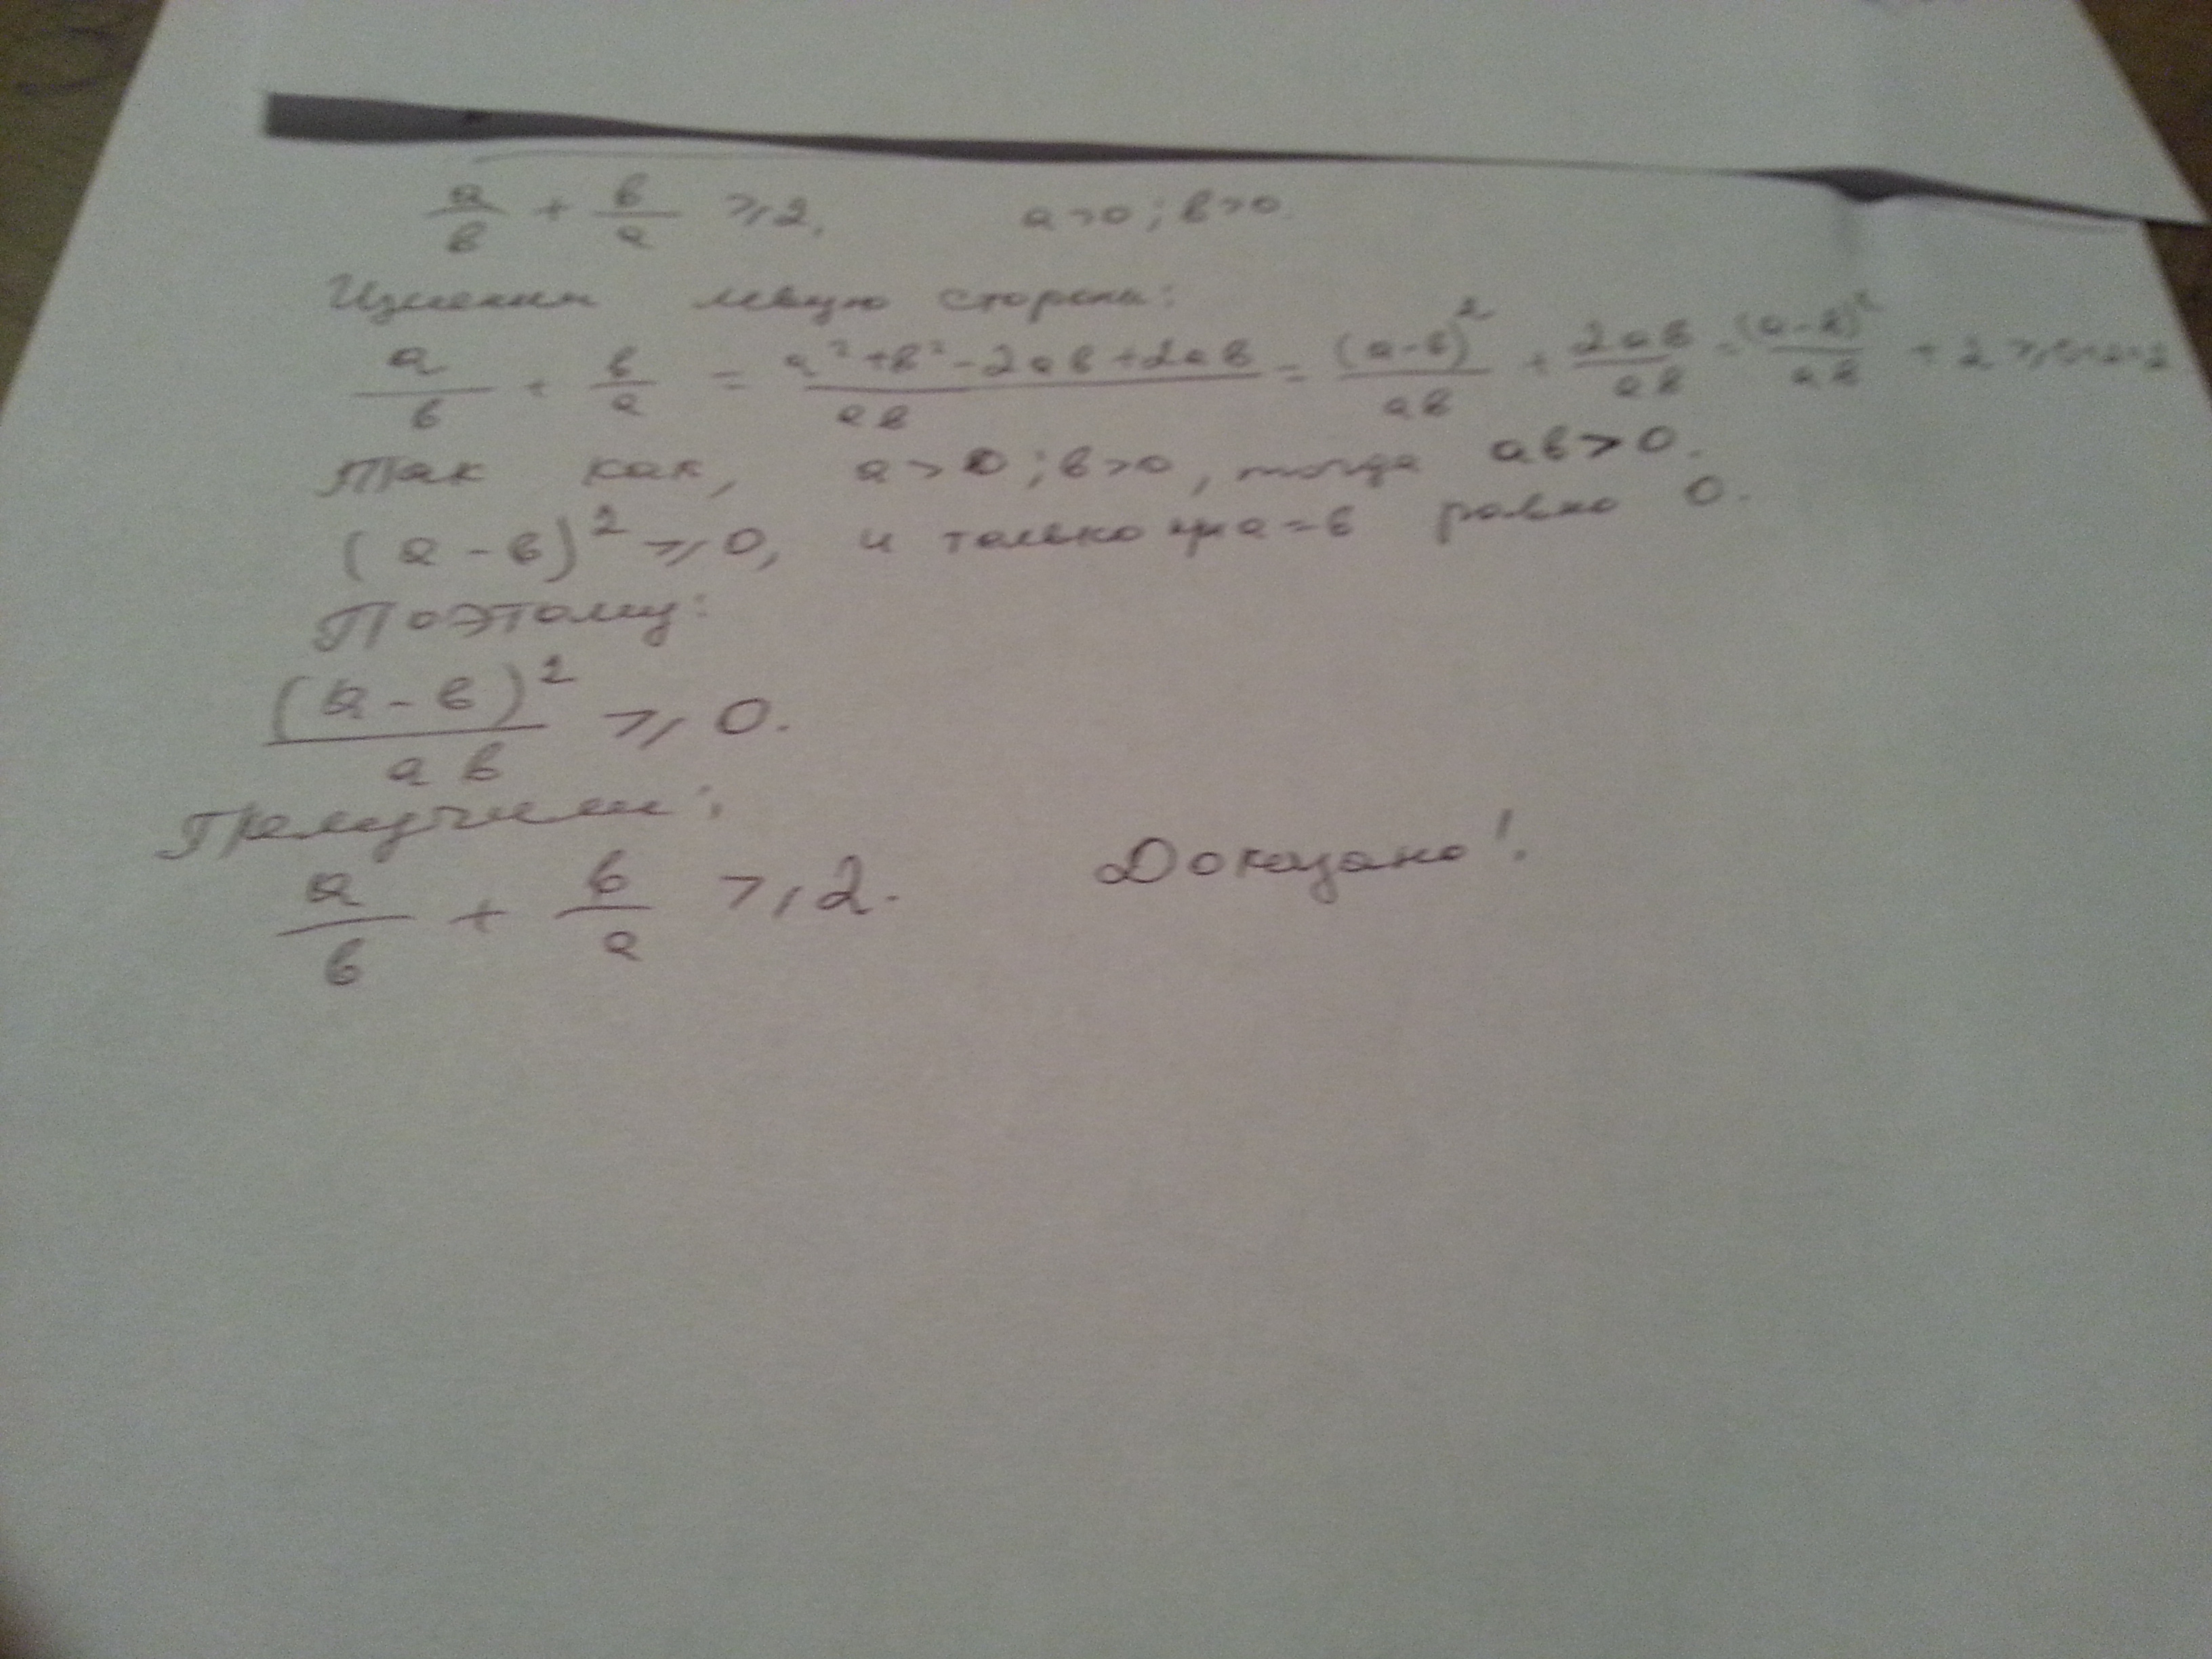 a/в + в/a ≥ 2, a>0; в>0.
Изменим левую сторону:
a/в + в/a = (a²+в²-2aв+2aв)/aв = (a-в)²/aв + 2aв/aв = (a-в)²/aв + 2 ≥
Так как, a>0; в>0, тогда aв>0.
(a-в)² ≥ 0, и только при a=в равно 0.
Поэтому:
(a-в)²/aв ≥ 0.
Получили:
a/в + в/a ≥ 2. Доказано!